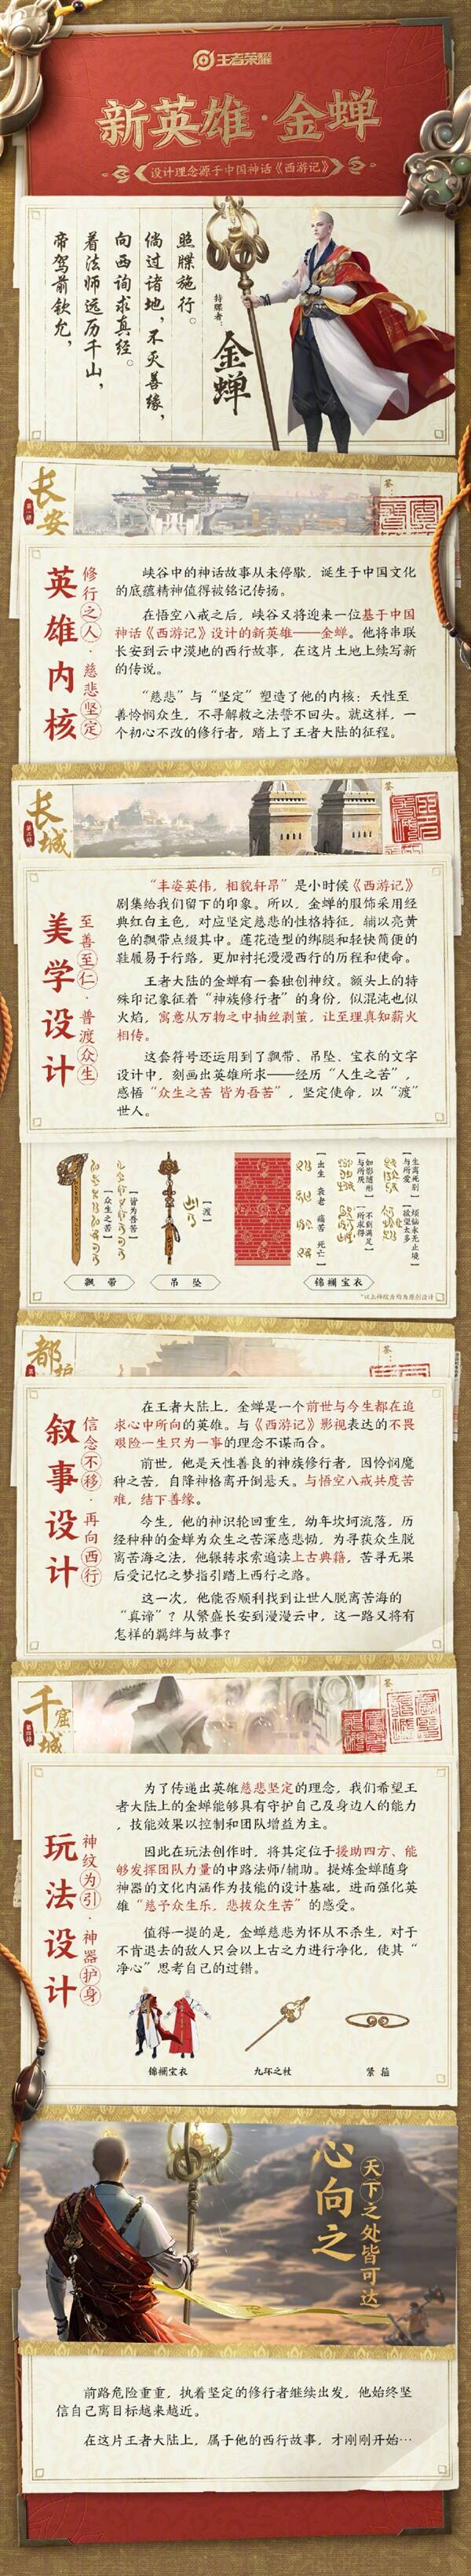 王者荣耀
新英雄·金蝉
设计理念源于中国神话《西游记》
帝驾前钦允，
着法师远历千山，
向西询求真经。
倘过诸地，不灭善缘，
照牒施行。
持牒者：
金蝉
长安
第一站
签：
英雄内核
修行之人·慈悲坚定
峡谷中的神话故事从未停歇，诞生于中国文化
的底蕴精神值得被铭记传扬。
在悟空八戒之后，峡谷又将迎来一位基于中国
神话《西游记》设计的新英雄——金蝉。他将串联
长安到云中漠地的西行故事，在这片土地上续写新
的传说。
“慈悲”与“坚定”塑造了他的内核：天性至
善怜悯众生，不寻解救之法誓不回头。就这样，一
个初心不改的修行者，踏上了王者大陆的征程。
长城
签：
美学设计
至善至仁·普渡众生
“丰姿英伟，相貌轩昂”是小时候《西游记》
剧集给我们留下的印象。所以，金蝉的服饰采用经
典红白主色，对应坚定慈悲的性格特征，辅以亮黄
色的飘带点缀其中。莲花造型的绑腿和轻快简便的
鞋履易于行路，更加衬托漫漫西行的历程和使命。
王者大陆的金蝉有一套独创神纹。额头上的特
殊印记象征着“神族修行者”的身份，似混沌也似
火焰，寓意从万物之中抽丝剥茧，让至理真知薪火
相传。
这套符号还运用到了飘带、吊坠、宝衣的文字
设计中，刻画出英雄所求——经历“人生之苦”，
感悟“众生之苦 皆为吾苦”，坚定使命，以“渡”
世人。
【众生之苦】
【皆为吾苦】
【渡】
【出生 衰老 痛苦 死亡】
飘带
吊坠
锦襕宝衣
*以上神纹为均为原创设计
都护
签：
叙事设计
信念不移·再向西行
在王者大陆上，金蝉是一个前世与今生都在追
求心中所向的英雄。与《西游记》影视表达的不畏
艰险一生只为一事的理念不谋而合。
前世，他是天性善良的神族修行者，因怜悯魔
种之苦，自降神格离开倒悬天。与悟空八戒共度苦
难，结下善缘。
今生，他的神识轮回重生，幼年坎坷流落，历
经种种的金蝉为众生之苦深感悲恸，为寻获众生脱
离苦海之法，他辗转求索遍读上古典籍，苦寻无果
后受记忆之梦指引踏上西行之路。
这一次，他能否顺利找到让世人脱离苦海的
“真谛”？从繁盛长安到漫漫云中，这一路又将有
怎样的羁绊与故事？
千窟城
签：
玩法设计
神纹为引·神器护身
为了传递出英雄慈悲坚定的理念，我们希望王
者大陆上的金蝉能够具有守护自己及身边人的能力
，技能效果以控制和团队增益为主。
因此在玩法创作时，将其定位于援助四方、能
够发挥团队力量的中路法师/辅助。提炼金蝉随身
神器的文化内涵作为技能的设计基础，进而强化英
雄“慈予众生乐，悲拔众生苦”的感受。
值得一提的是，金蝉慈悲为怀从不杀生，对于
不肯退去的敌人只会以上古之力进行净化，使其“
净心”思考自己的过错。
锦襕宝衣
九环之杖
紧箍
心向之
天下之处皆可达
前路危险重重，执着坚定的修行者继续出发，他始终坚
信自己离目标越来越近。
在这片王者大陆上，属于他的西行故事，才刚刚开始…